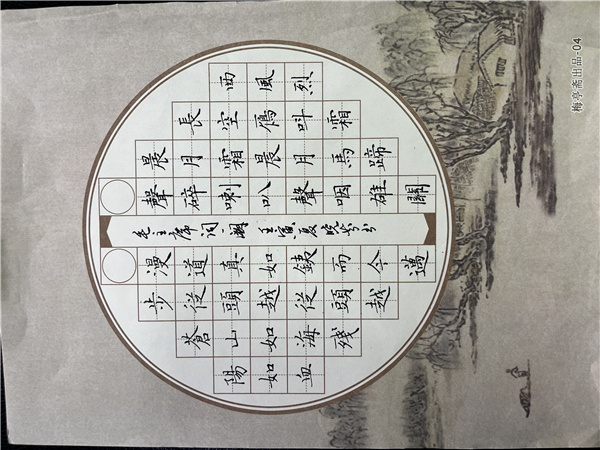 西風烈
長空鴈叫霜
晨月霜晨月馬蹄
聲碎喇叭聲咽雄關
毛主席词 壬寅夏 书
漫道真如鐵而今邁
步從頭越從頭越
蒼山如海殘
陽如血
梅亭斋出品-04